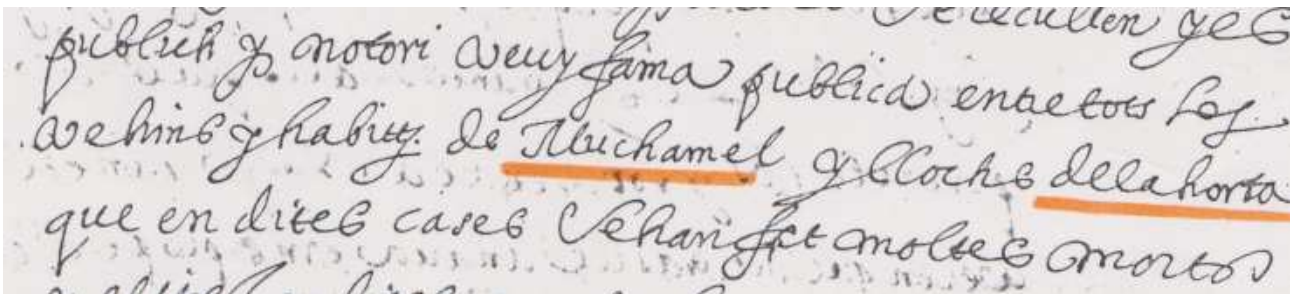 publich y notori veu y fama publica entre tots los
vehins y habitz. de Muchamel y llochs de la horta
que en dites cases se han fet moltes morts